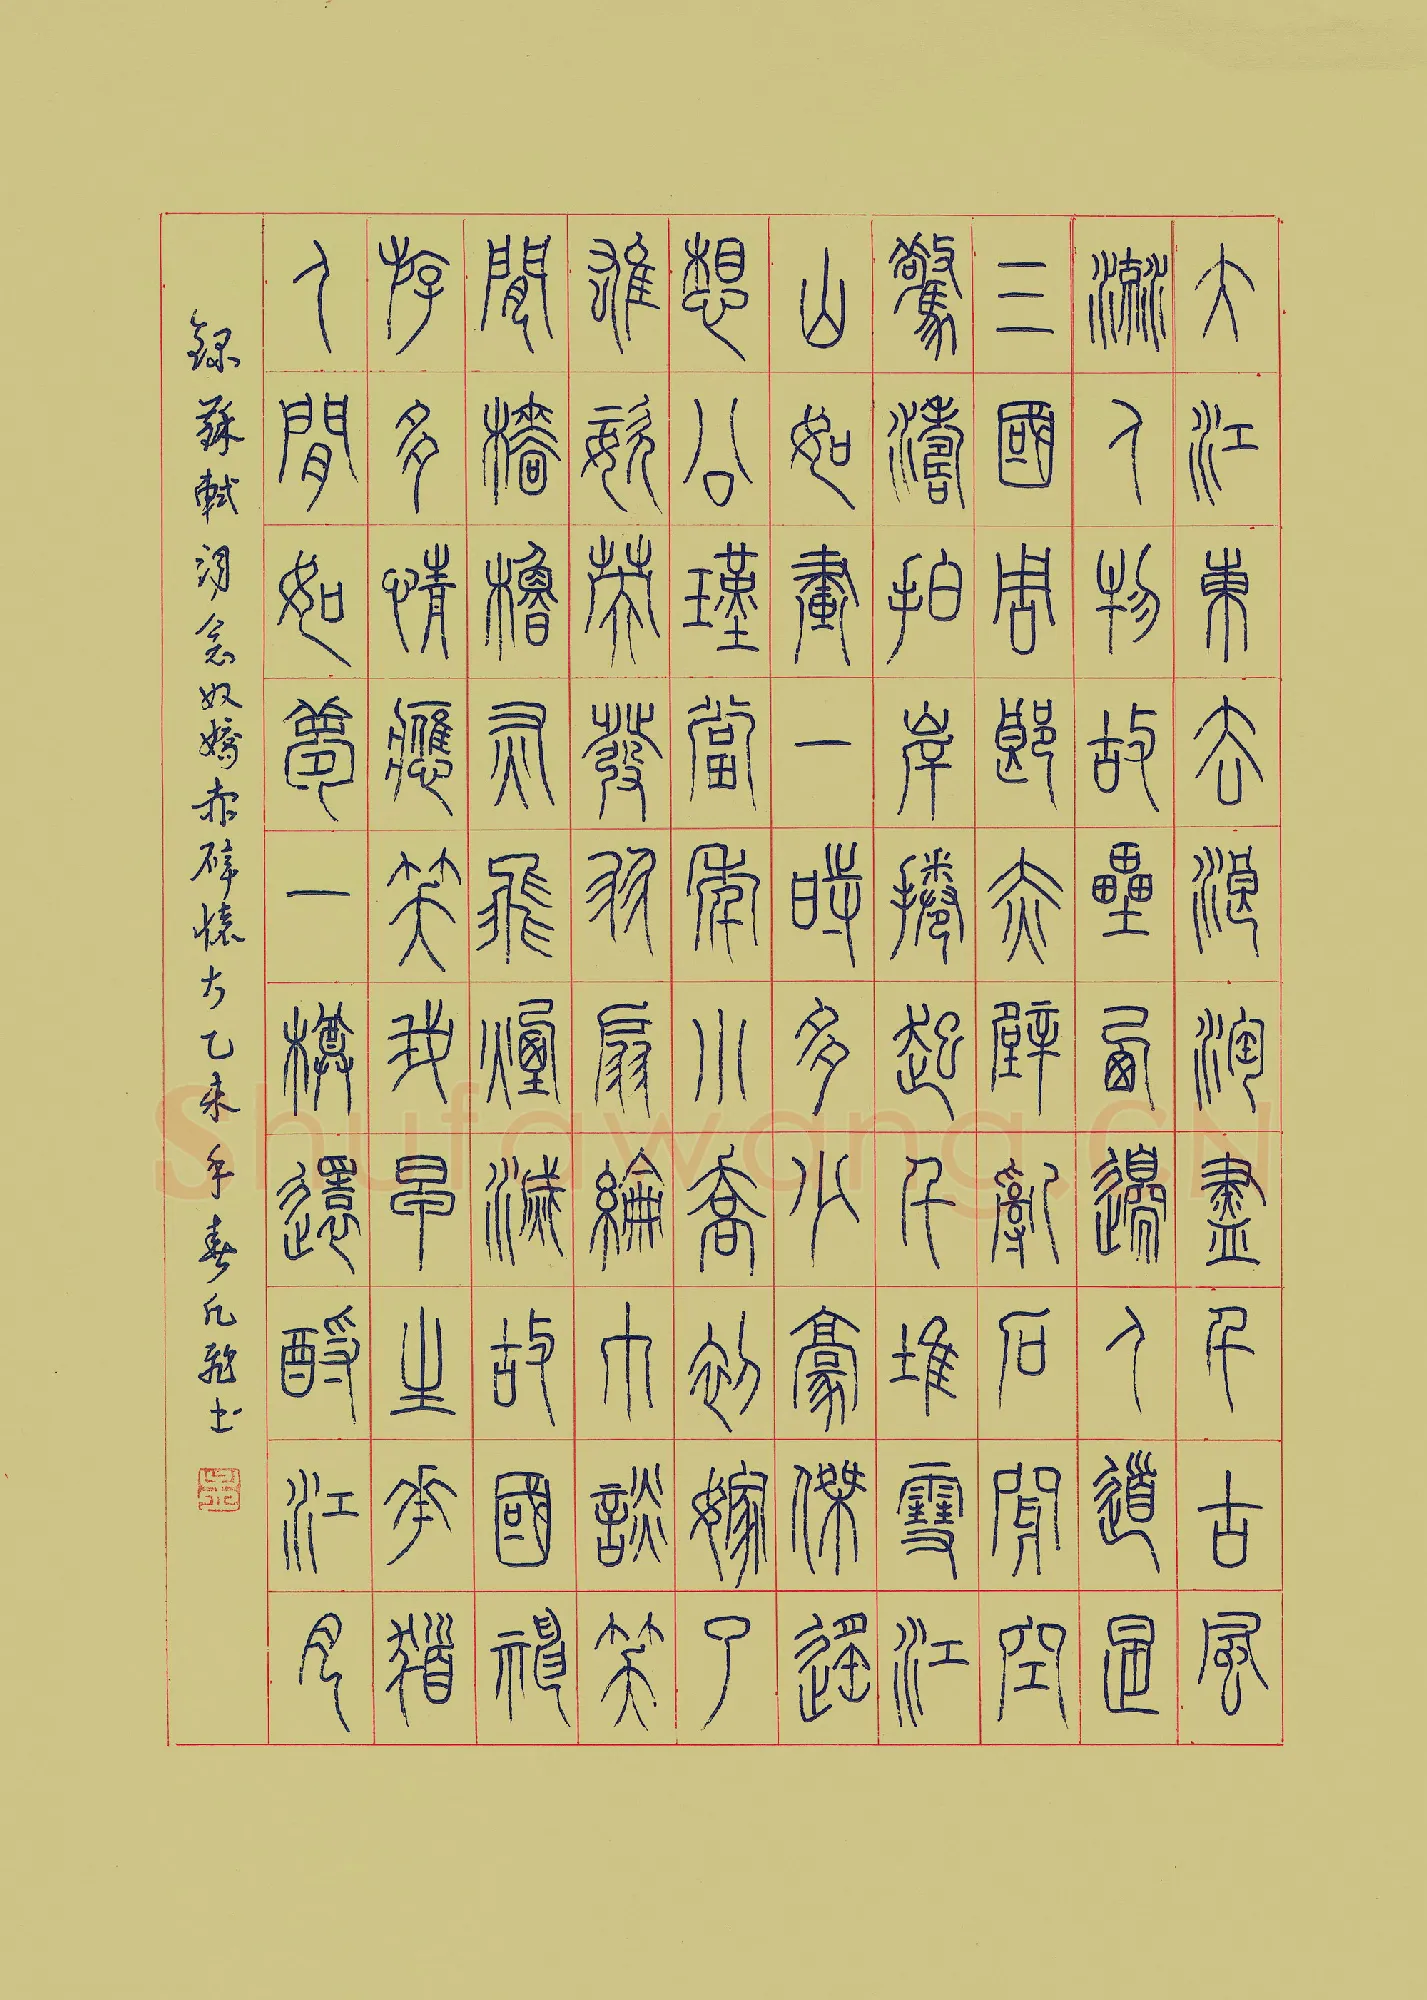 大江東去浪淘盡千古風
流人物故壘西邊人道是
三國周郎赤壁亂石閒空
驚濤拍岸捲起千堆雪江
山如畫一時多少豪傑遙
想公瑾當年小喬初嫁了
雄姿英發羽扇綸巾談笑
閒檣櫓灰飛煙滅故國神
游多情應笑我早生華髮
人閒如夢一樽還酹江月
錄蘇軾詞念奴嬌赤壁懷古乙未年春凡书
Shufawang.CN